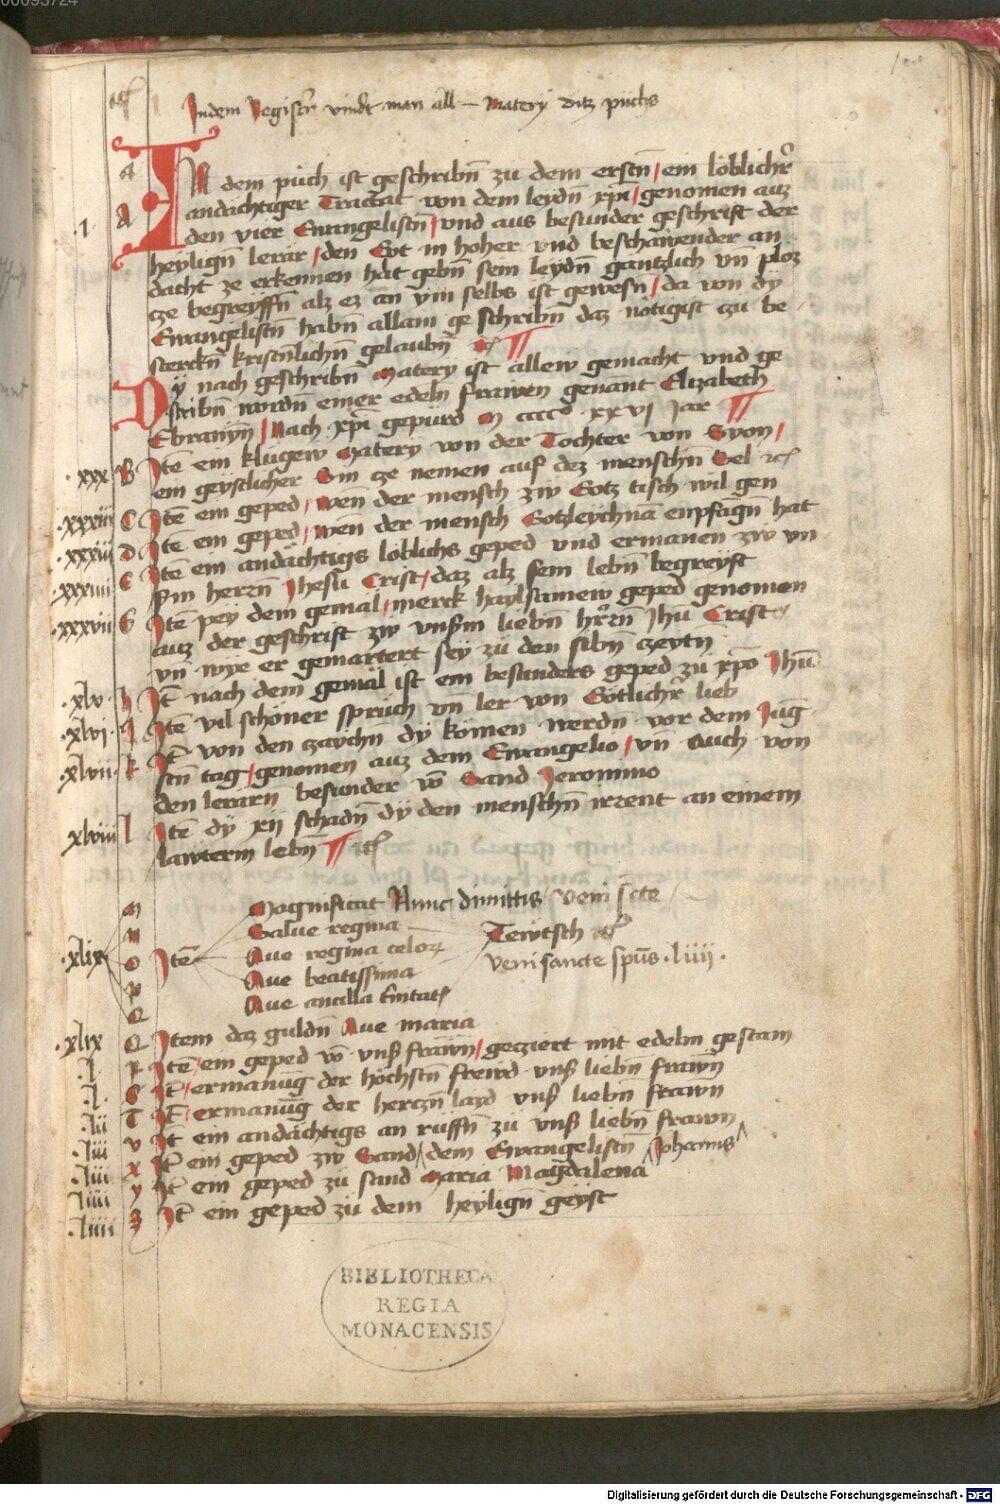 00093724
Jn dem Register vindt man all matery ditz püchs
a
·1· A JN dem püch ist geschribn̄ zü dem erstn̄ / ein loblichr̄
andachtiger Tractat von dem leydn̄ xp̄i / genomen auz
den vier Ewangelistn̄ / vnd aus besunder geschrift der
heylign̄ lerār / den Got in hoher vnd beschawender an
dacht ze erkennen hat gebn̄ sein leydn̄ gantzlich vn̄ ploz
ze begreyffn̄ alz ez an ym selbs ist gewesn̄ / da von dÿ
Ewangelistn̄ habn̄ allain ge schribn̄ daz nötigist zu be
sterckn̄ kristnlichn̄ gelaubn̄ ꝛc̄
Dÿ nach geschribn̄ Matery ist allew gemacht vnd ge
schribn̄ wordn̄ einer edeln̄ frawen genant Elizabeth
Ebranyn̄ / Nach xp̄i gepürd M cccc° xxvi Jar
·xxx· B Jtē ein klügew Matery von der Tochter von Syon /
ein geystlicher Sin ze nemen auf dez menschn̄ Sel ꝛc̄
·xxxii C Jtē ein geped / wen der mensch zw Gotz tisch wil gen
·xxxiii D Jtē ein geped / wen der mensch Gotzleychnā enpfāgn̄ hat
·xxxiiii E Jtē ein andächtigs loblichs geped vnd ermanen zw vn
serm herrn̄ Jhesu Crist / daz alz sein lebn̄ begreyft
·xxxvii G Jtē pey dem gemäl / merck haylsamew geped genomen
auz der geschrift zw vnserm liebn̄ hr̄rn̄ Jhū Crist
vn̄ wye er gemartert sey zü den sibn̄ czeytn̄
·xlv· h Jt̄ nach dem gemäl ist ein besunders geped zü xp̄o Jhū
·xlvi· J Jtē vil schöner sprüch vn̄ ler von Götlichr̄ lieb
·xlvii· k Jt̄ von den zaychn̄ dÿ kömen werdn̄ vor dem Jüg
stn̄ tag / genomen auz dem Ewangelio / vn̄ Auch von
den lerarn besunder vō Sand Jeronimo
·xlviii l Jtē dÿ xij schadn̄ dÿ den menschn̄ irrent an einem
lawterm lebn̄ ꝛc̄
M Magnificat Nunc dimittis veni scte
N Salue regina Tewtsch ꝛc̄
·xlix O Jtē Aue regina celoꝝ veni sancte spūs · liiii ·
P Aue beatissima
Q Aue ancilla t̄nitatꝭ
·xlix Q Jtem daz guldn̄ Aue maria
·l· R Jtē / ein geped vō vnß frawn̄ / gecziert mit edeln gestain
·l· S Jt̄ / ermanūg der höchstn̄ frewd vnß liebn̄ frawn̄
·lii T Jt̄ / ermanūg der herczn̄ layd vnß liebn̄ frawn̄
·liii v Jt̄ ein andächtigs an ruffn̄ zü vnß liebn̄ frawn̄
·liii x Jt̄ ein geped zw Sand dem Ewangelistn̄ Johannis
·liiii y Jt̄ ein geped zü sand Maria Magdalena
·liiii Z Jt̄ ein geped zü dem heylign̄ geyst
BIBLIOTHECA
REGIA
MONACENSIS
Digitalisierung gefördert durch die Deutsche Forschungsgemeinschaft - DFG